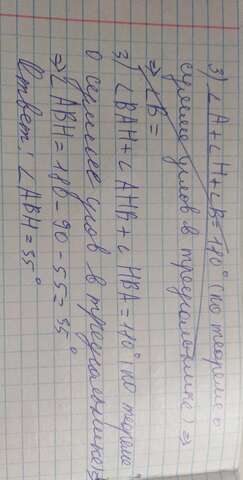 3) ∠A+∠H+∠B=180° (по теореме о
сумме углов в треугольнике) ⇒
⇒ ∠B =
3) ∠BAH+∠AHB+∠HBA=180° (по теореме
о сумме углов в треугольнике) ⇒
⇒ ∠ABH=180-90-55=35°
Ответ: ∠ABH=35°